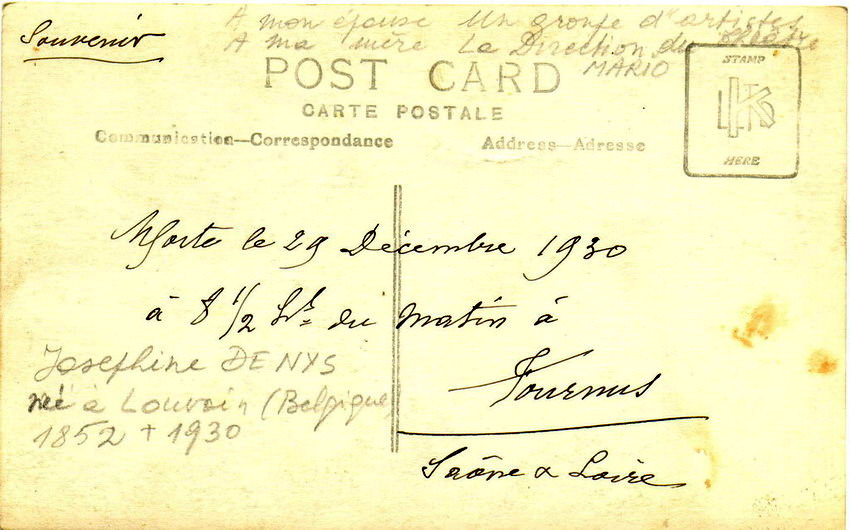 Souvenir
A mon épouse Un groupe d'artistes
A ma mère La Direction du théâtre
MARIO
POST CARD
CARTE POSTALE
Communication—Correspondance
Address—Adresse
STAMP
HERE
Morte le 29 Décembre 1930
à 8 1/2 hrs du matin à
Tournus
Saône & Loire
Josephine DENYS
née à Louvain (Belgique)
1852 + 1930